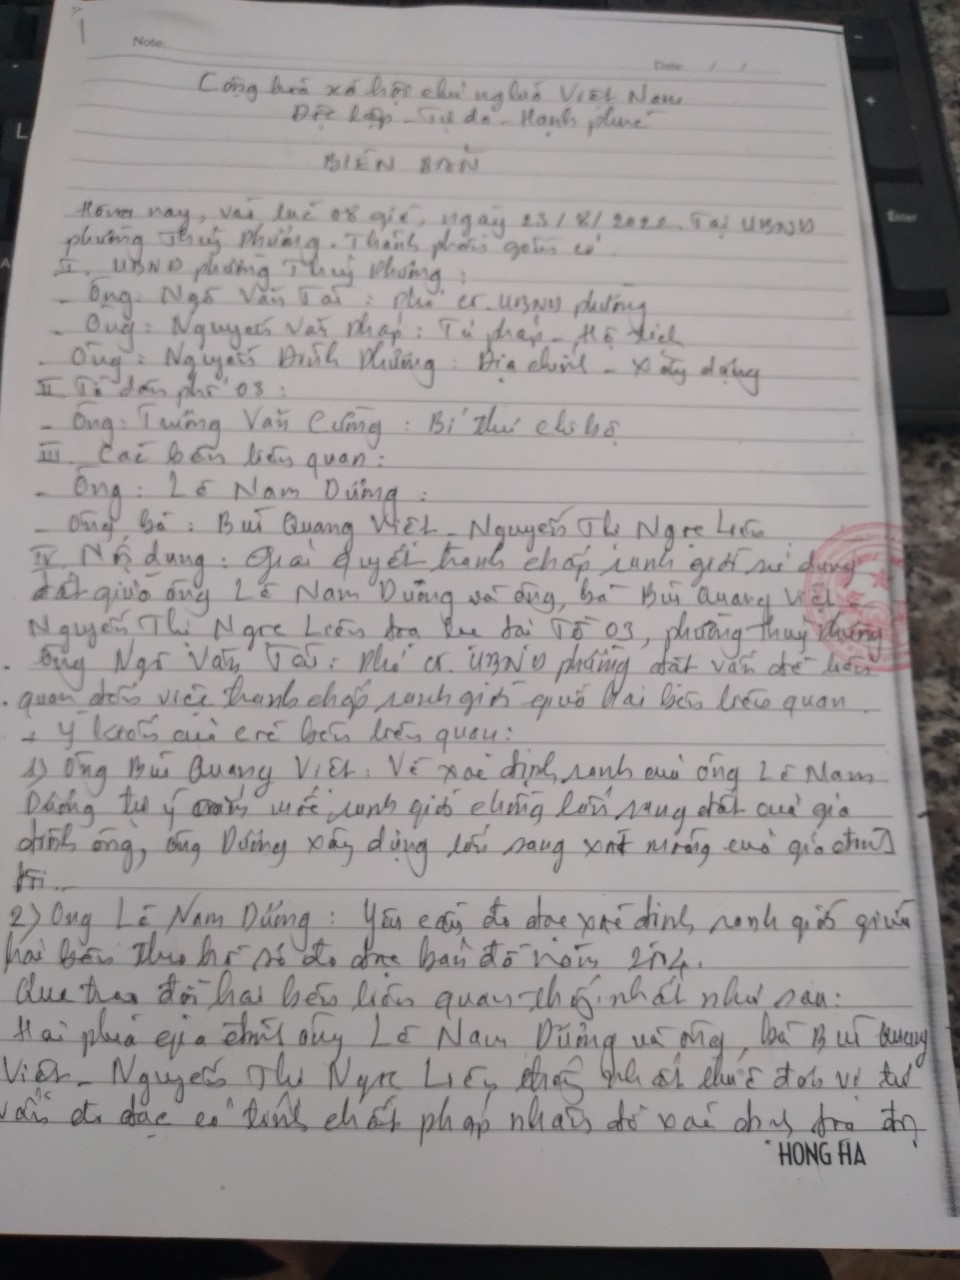 Note:
Date / /
Cộng hoà xã hội chủ nghĩa Việt Nam
Độc lập - Tự do - Hạnh phúc
BIÊN BẢN
Hôm nay, vào lúc 08 giờ, ngày 23/8/2022. Tại UBND
phường Thuỷ Phương. Thành phần gồm có
I. UBND phường Thuỷ Phương:
- Ông: Ngô Văn Tài: phó CT. UBND phường
- Ông: Nguyễn Văn Pháp: Tư pháp - Hộ tịch
- Ông: Nguyễn Đình Phương: Địa chính - xây dựng
II. Tổ dân phố 03:
- Ông: Trương Văn Cường: Bí thư chi bộ
III. Các bên liên quan:
- Ông: Lê Nam Dương:
- Ông, bà: Bùi Quang Việt - Nguyễn Thị Ngọc Liên
IV. Nội dung: Giải quyết tranh chấp ranh giới sử dụng
đất giữa ông Lê Nam Dương và ông, bà Bùi Quang Việt -
Nguyễn Thị Ngọc Liên tại Tổ 03, phường Thuỷ Phương
. Ông Ngô Văn Tài: Phó CT. UBND phường đặt vấn đề liên
. quan đến việc tranh chấp ranh giới giữa hai bên liên quan
+ Ý kiến của các bên liên quan:
1) Ông Bùi Quang Việt: Về xác định ranh của ông Lê Nam
Dương tự ý cắm mốc ranh giới chồng lấn sang đất của gia
đình ông, ông Dương xây dựng lấn sang móng của gia đình
2) Ông Lê Nam Dương: Yêu cầu đo đạc xác định ranh giới giữa
hai bên theo hồ sơ đo đạc bản đồ năm
Qua trao đổi hai bên liên quan thống nhất như sau:
Hai phía gia đình ông Lê Nam Dương và ông, bà Bùi Quang
Việt - Nguyễn Thị Ngọc Liên thống nhất thuê đơn vị tư
vấn đo đạc có tính chất pháp nhân để xác định
HONG HA